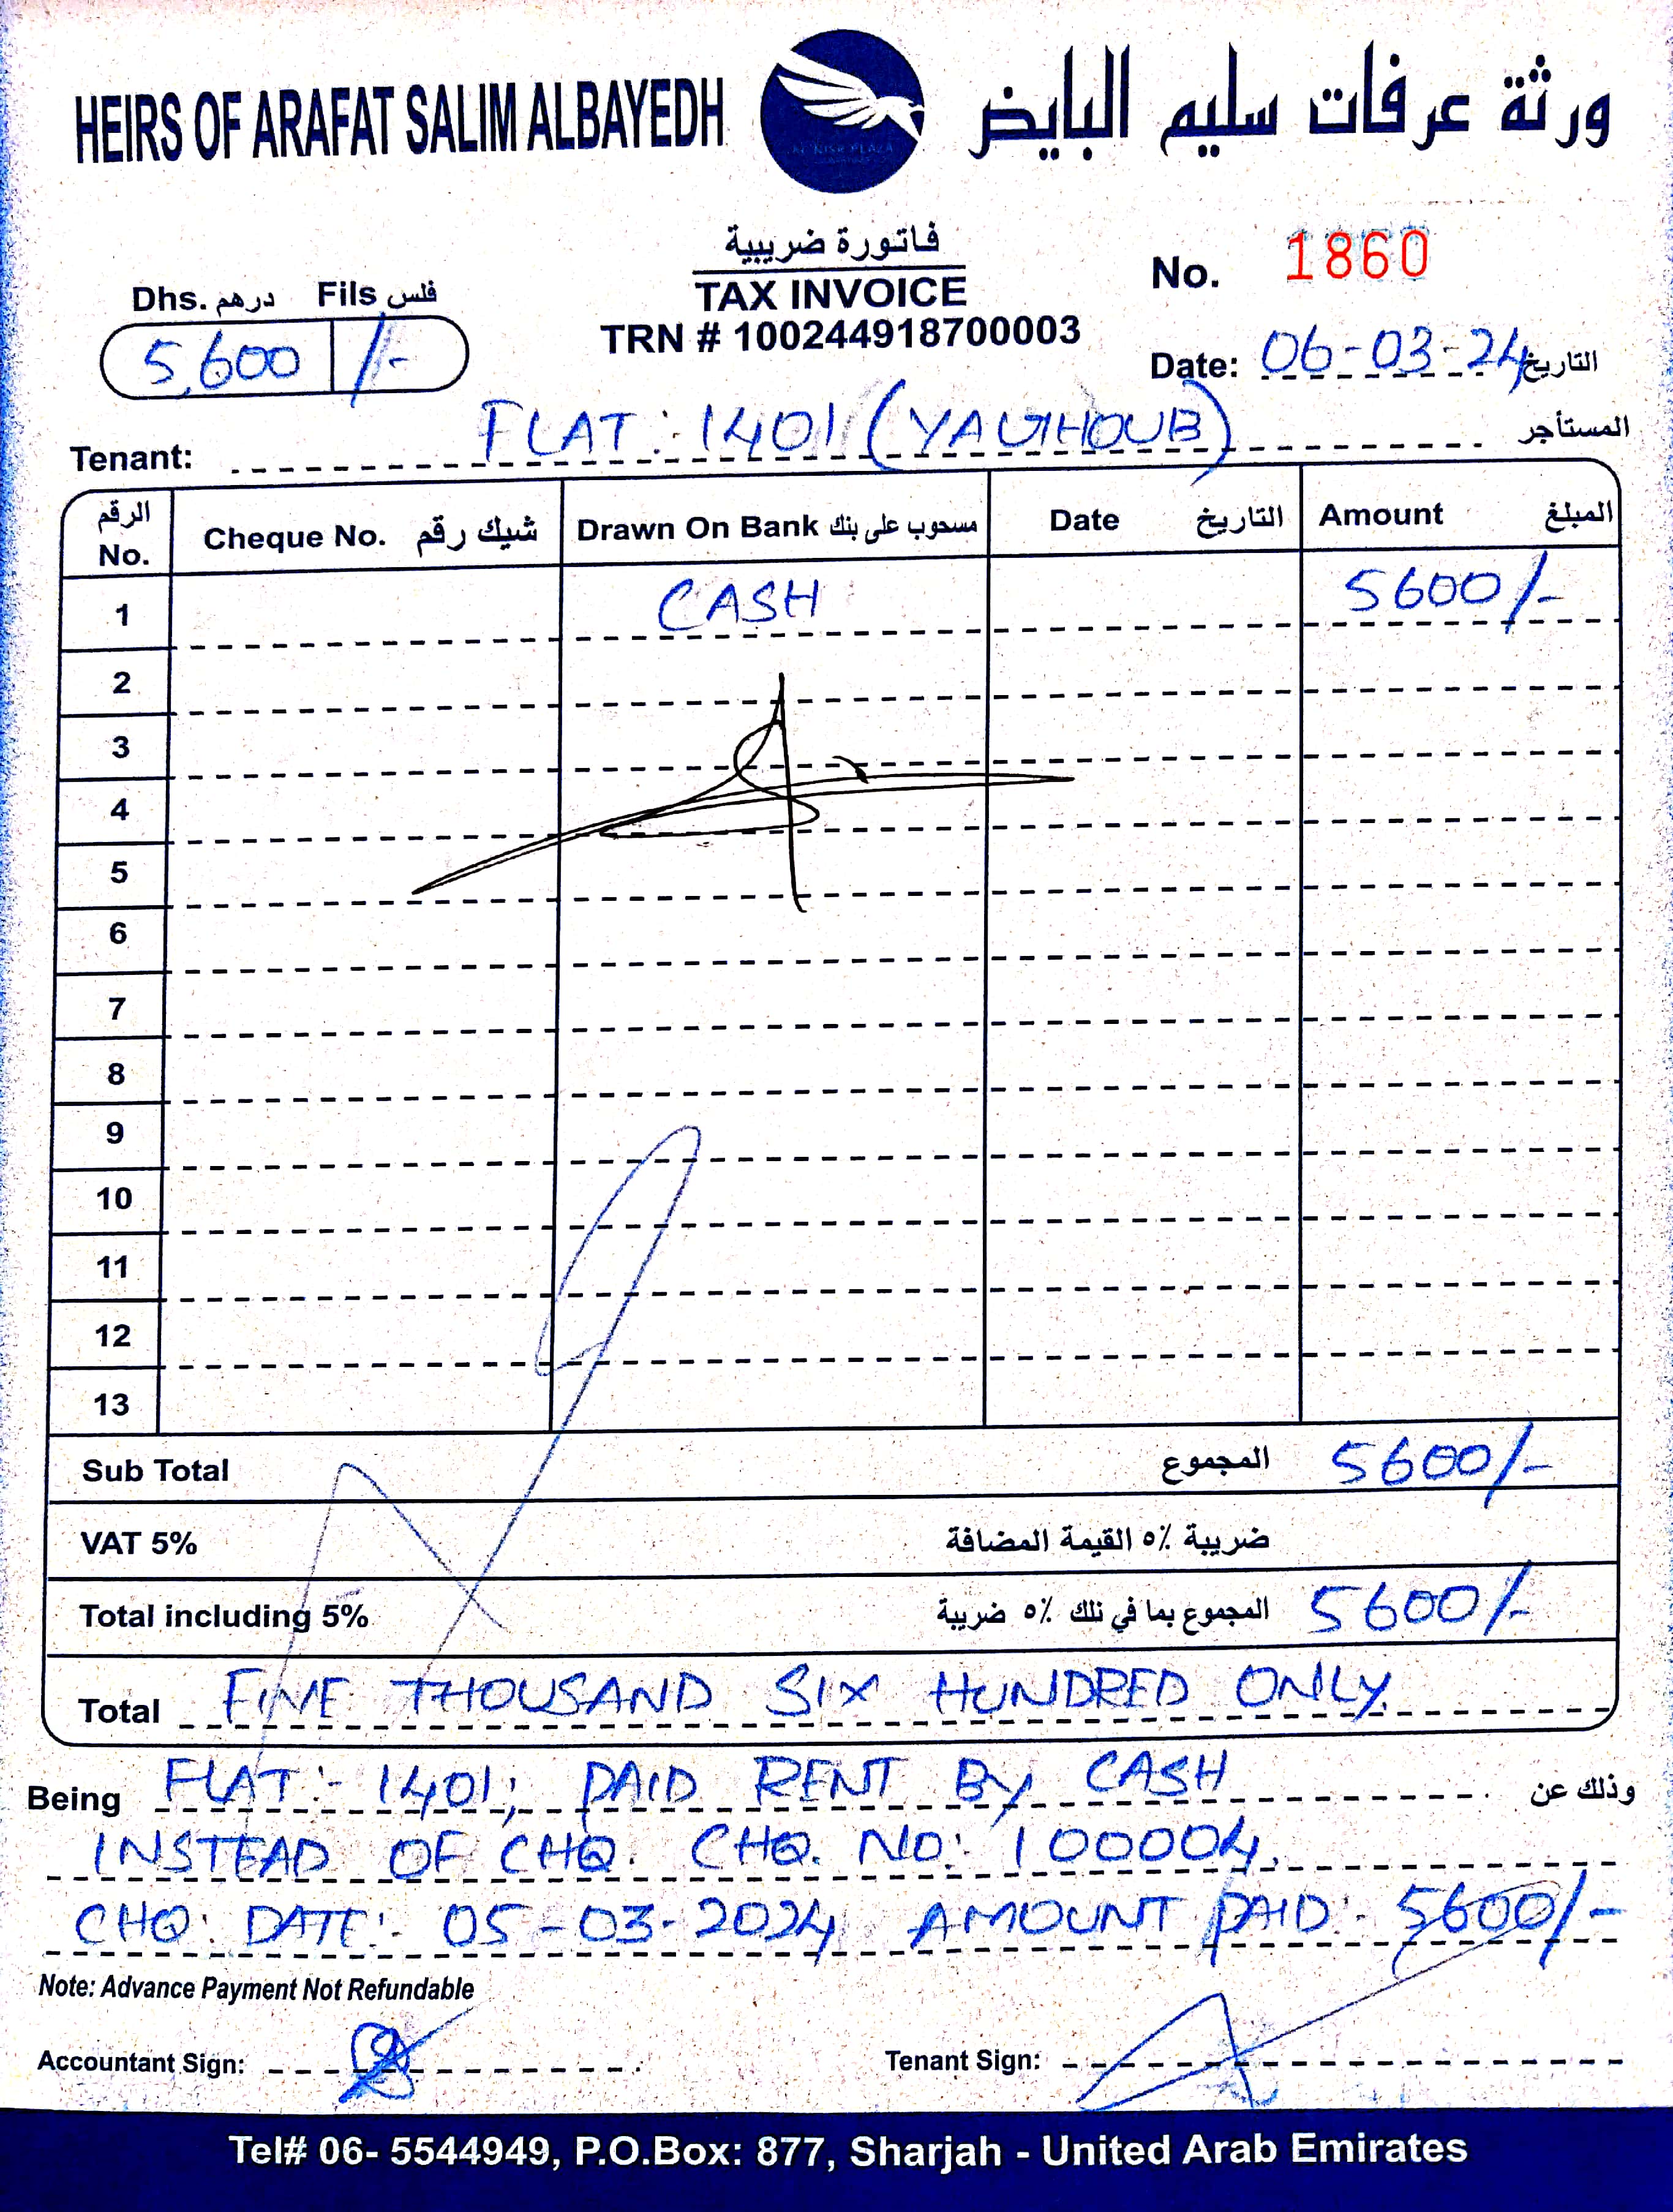 HEIRS OF ARAFAT SALIM ALBAYEDH
ورثة عرفات سليم البايض
AL NISR PLAZA
فاتورة ضريبية
TAX INVOICE
TRN # 100244918700003
No. 1860
Dhs. درهم Fils فلس
5,600 /-
Date: 06-03-24 التاريخ
Tenant: FLAT: 1401 (YAUHOUB) المستأجر
الرقم No. Cheque No. شيك رقم Drawn On Bank مسحوب على بنك Date التاريخ Amount المبلغ
1 CASH 5600/-
2
3
4
5
6
7
8
9
10
11
12
13
Sub Total المجموع 5600/-
VAT 5% ضريبة ٥٪ القيمة المضافة
Total including 5% المجموع بما في ذلك ٥٪ ضريبة 5600/-
Total FIVE THOUSAND SIX HUNDRED ONLY.
Being FLAT:- 1401; PAID RENT BY CASH وذلك عن
INSTEAD OF CHQ. CHQ. NO: 100004.
CHQ: DATE:- 05-03-2024 AMOUNT PAID: 5600/-
Note: Advance Payment Not Refundable
Accountant Sign: Tenant Sign:
Tel# 06- 5544949, P.O.Box: 877, Sharjah - United Arab Emirates